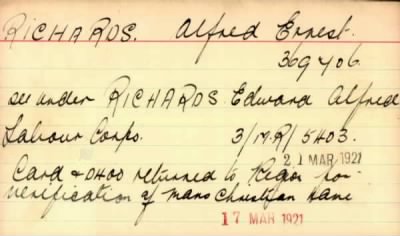 RICHARDS. Alfred Ernest.
369406.
see under RICHARDS Edward Alfred
Labour Corps. 3/MR/5403.
21 MAR 1921
Card & 0400 returned to for
verification of mans Christian name
17 MAR 1921